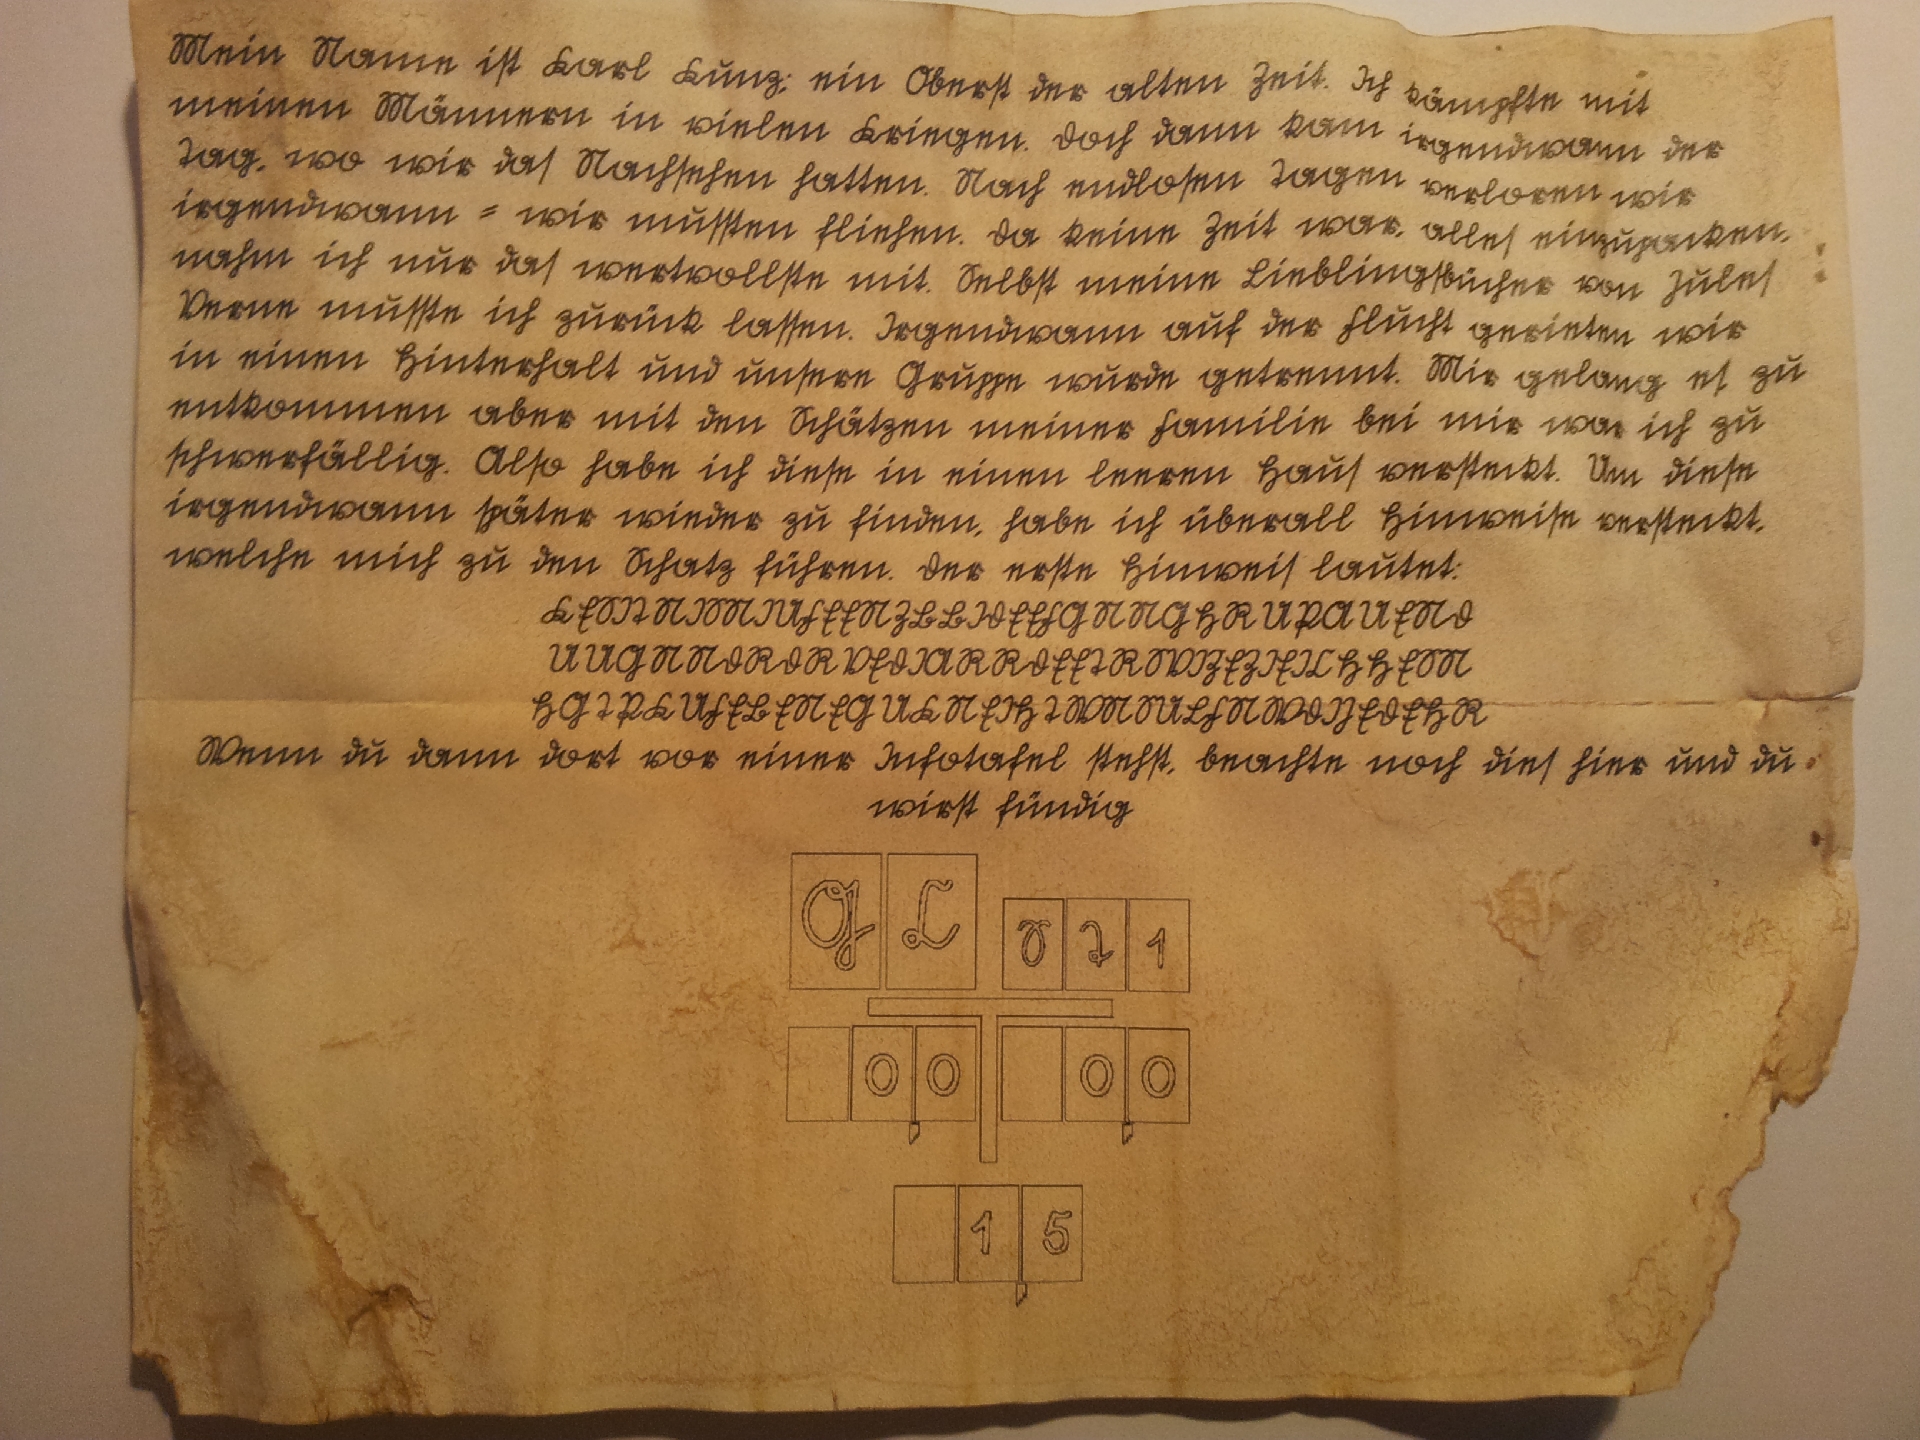 Mein Name ist Karl Kunz; ein Oberst der alten Zeit. Ich kämpfte mit
meinen Männern in vielen Kriegen. Doch dann kam irgendwann der
Tag, wo wir das Nachsehen hatten. Nach endlosen Tagen verloren wir
irgendwann = wir mussten fliehen. Da keine Zeit war, alles einzupacken,
nahm ich nur das wertvollste mit. Selbst meine Lieblingsbücher von Jules
Verne musste ich zurück lassen. Irgendwann auf der Flucht gerieten wir
in einen Hinterhalt und unsere Gruppe wurde getrennt. Mir gelang es zu
entkommen aber mit den Schätzen meiner Familie bei mir war ich zu
schwerfällig. Also habe ich diese in einen leeren Haus versteckt. Um diese
irgendwann später wieder zu finden, habe ich überall Hinweise versteckt,
welche mich zu den Schatz führen. Der erste Hinweis lautet:
Wenn du dann dort vor einer Infotafel stehst, beachte noch dies hier und du
wirst fündig
G L
T 1
0 0 0 0
1 5